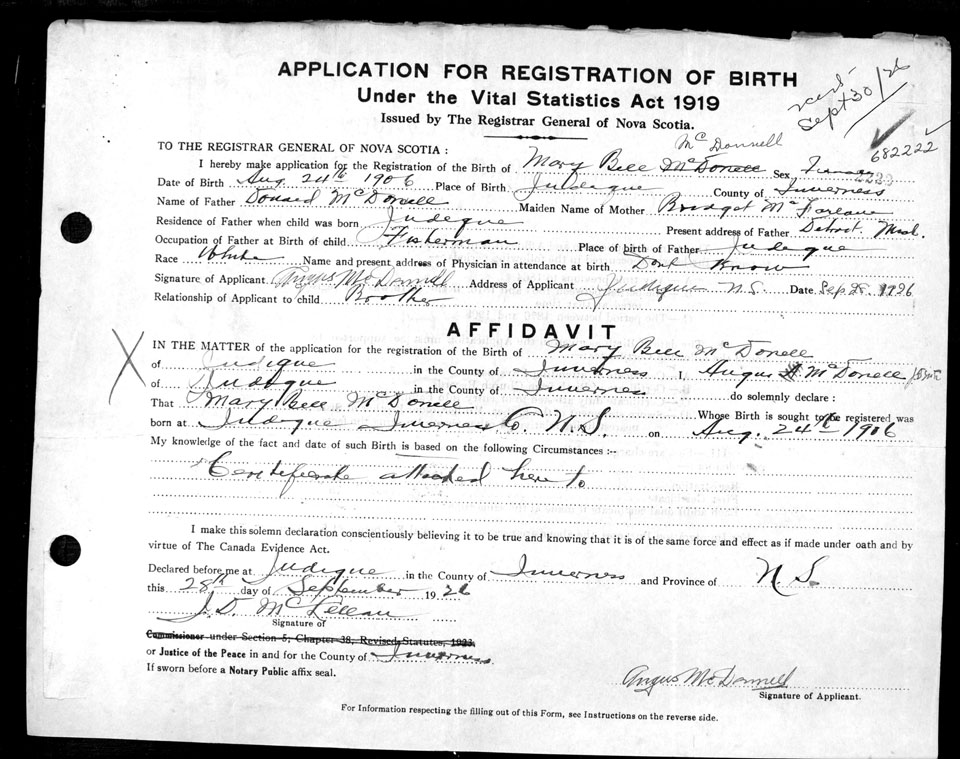 APPLICATION FOR REGISTRATION OF BIRTH
Under the Vital Statistics Act 1919
Issued by The Registrar General of Nova Scotia.
Sept 30/26
682222
McDonnell
TO THE REGISTRAR GENERAL OF NOVA SCOTIA:
I hereby make application for the Registration of the Birth of Mary Bell McDonell Sex
Date of Birth Aug. 24th 1906 Place of Birth Judique County of Inverness
Name of Father Donald McDonell Maiden Name of Mother Bridget McFarlane
Residence of Father when child was born Judique Present address of Father Detroit, Mich.
Occupation of Father at Birth of child Fisherman Place of birth of Father Judique
Race White Name and present address of Physician in attendance at birth Dont Know
Signature of Applicant Angus McDonnell Address of Applicant Judique N.S. Date Sep 28 1926
Relationship of Applicant to child Brother
AFFIDAVIT
IN THE MATTER of the application for the registration of the Birth of Mary Bell McDonell
of Judique in the County of Inverness I, Angus McDonell
of Judique in the County of Inverness do solemnly declare:
That Mary Bell McDonell Whose Birth is sought to be registered was
born at Judique Inverness Co. N.S. on Aug. 24th 1906
My knowledge of the fact and date of such Birth is based on the following Circumstances:-
Certificate attached here to
I make this solemn declaration conscientiously believing it to be true and knowing that it is of the same force and effect as if made under oath and by
virtue of The Canada Evidence Act.
Declared before me at Judique in the County of Inverness and Province of N.S.
this 28th day of September 1926
J.D. McLellan
Signature of
Commissioner under Section 5, Chapter 38, Revised Statutes, 1923
or Justice of the Peace in and for the County of Inverness.
If sworn before a Notary Public affix seal.
Angus McDonnell
Signature of Applicant.
For Information respecting the filling out of this Form, see Instructions on the reverse side.